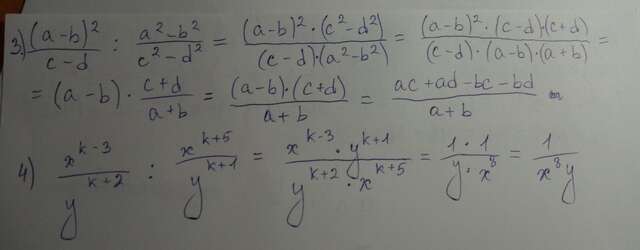 3) (a-b)²/(c-d) : (a²-b²)/(c²-d²) = ((a-b)²·(c²-d²))/((c-d)·(a²-b²)) = ((a-b)²·(c-d)·(c+d))/((c-d)·(a-b)·(a+b)) =
= (a-b)·(c+d)/(a+b) = ((a-b)·(c+d))/(a+b) = (ac+ad-bc-bd)/(a+b)
4) x^(k-3)/y^(k+2) : x^(k+5)/y^(k+1) = (x^(k-3)·y^(k+1))/(y^(k+2)·x^(k+5)) = (1·1)/(y·x⁸) = 1/(x⁸y)